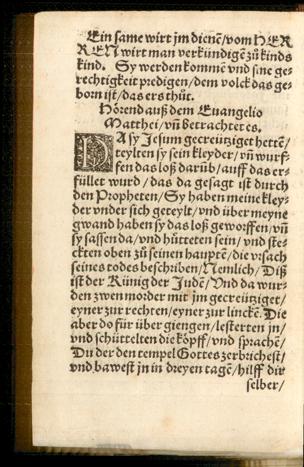 Ein same wirt jm dienẽ/vom HER
REN wirt man verkündigẽ zů kinds
kind. Sy werden kommẽ vnd sine ge-
rechtigkeit predigen/dem volck das ge-
born ist/das ers thůt.
Hörend auß dem Euangelio
Matthei/vñ betrachtet es.
DA sy Jesum gecreütziget hettẽ/
teylten sy sein kleyder/vñ wurf-
fen das loß darüb/auff das er-
füllet wurd/das da gesagt ist durch
den Propheten/Sy haben meine kley-
der vnder sich geteylt/vnd über meyne
gwand haben sy das loß geworffen/vñ
sy sassen da/vnd hütteten sein/vnd ste-
ckten oben zů seinen hauptẽ/die vrsach
seines todes beschriben/Nemlich/Diß
ist der Künig der Judẽ/Vnd da wur-
den zwen morder mit jm gecreütziget/
eyner zur rechten/eyner zur linckẽ. Die
aber do für über giengen/lesterten jn/
vnd schüttelten die köpff/vnd sprachẽ/
Du der den tempel Gottes zerbrichest/
vnd bawest jn in dreyen tagẽ/hilff dir
selber/